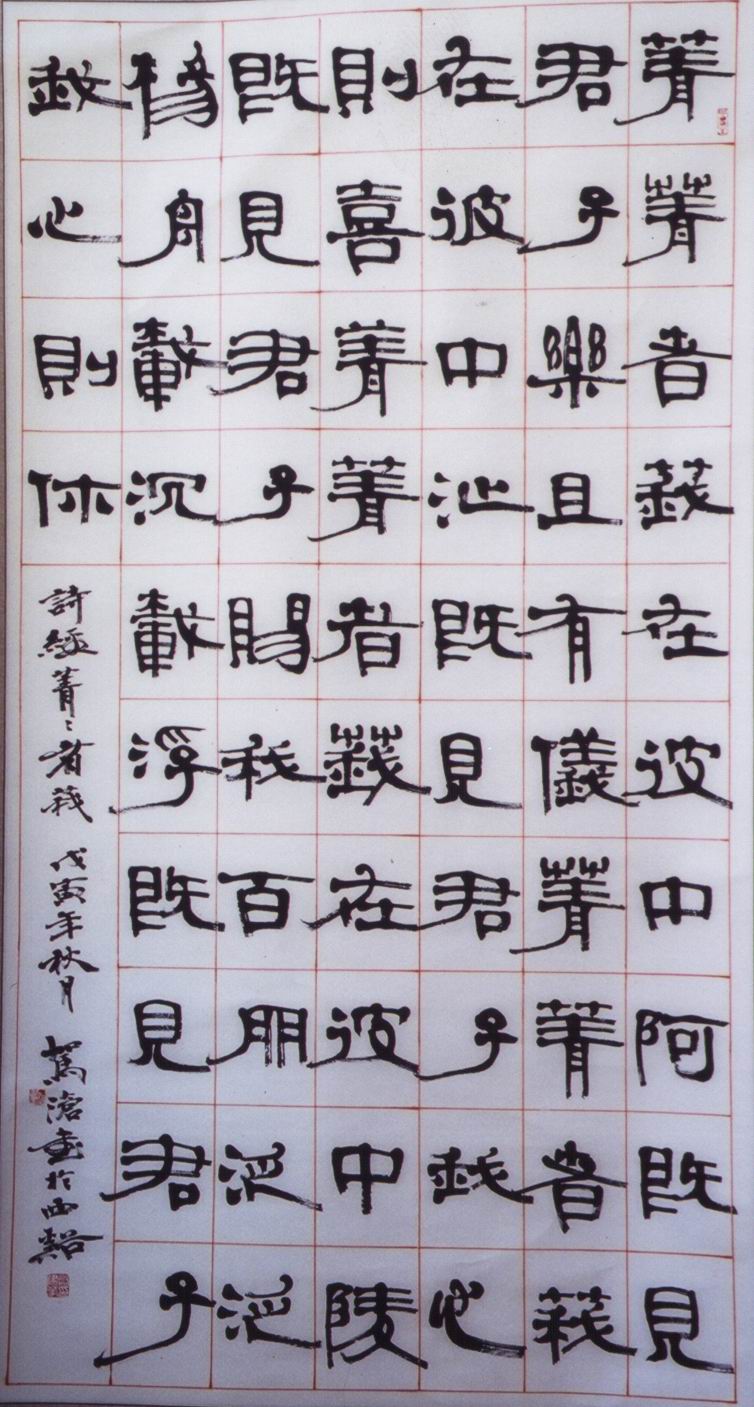 菁菁者莪在彼中阿既見
君子樂且有儀菁菁者莪
在彼中沚既見君子我心
則喜菁菁者莪在彼中陵
既見君子賜我百朋泛泛
楊舟載沉載浮既見君子
我心則休
詩經菁〻者莪 戊寅年秋月 滄書於西谿